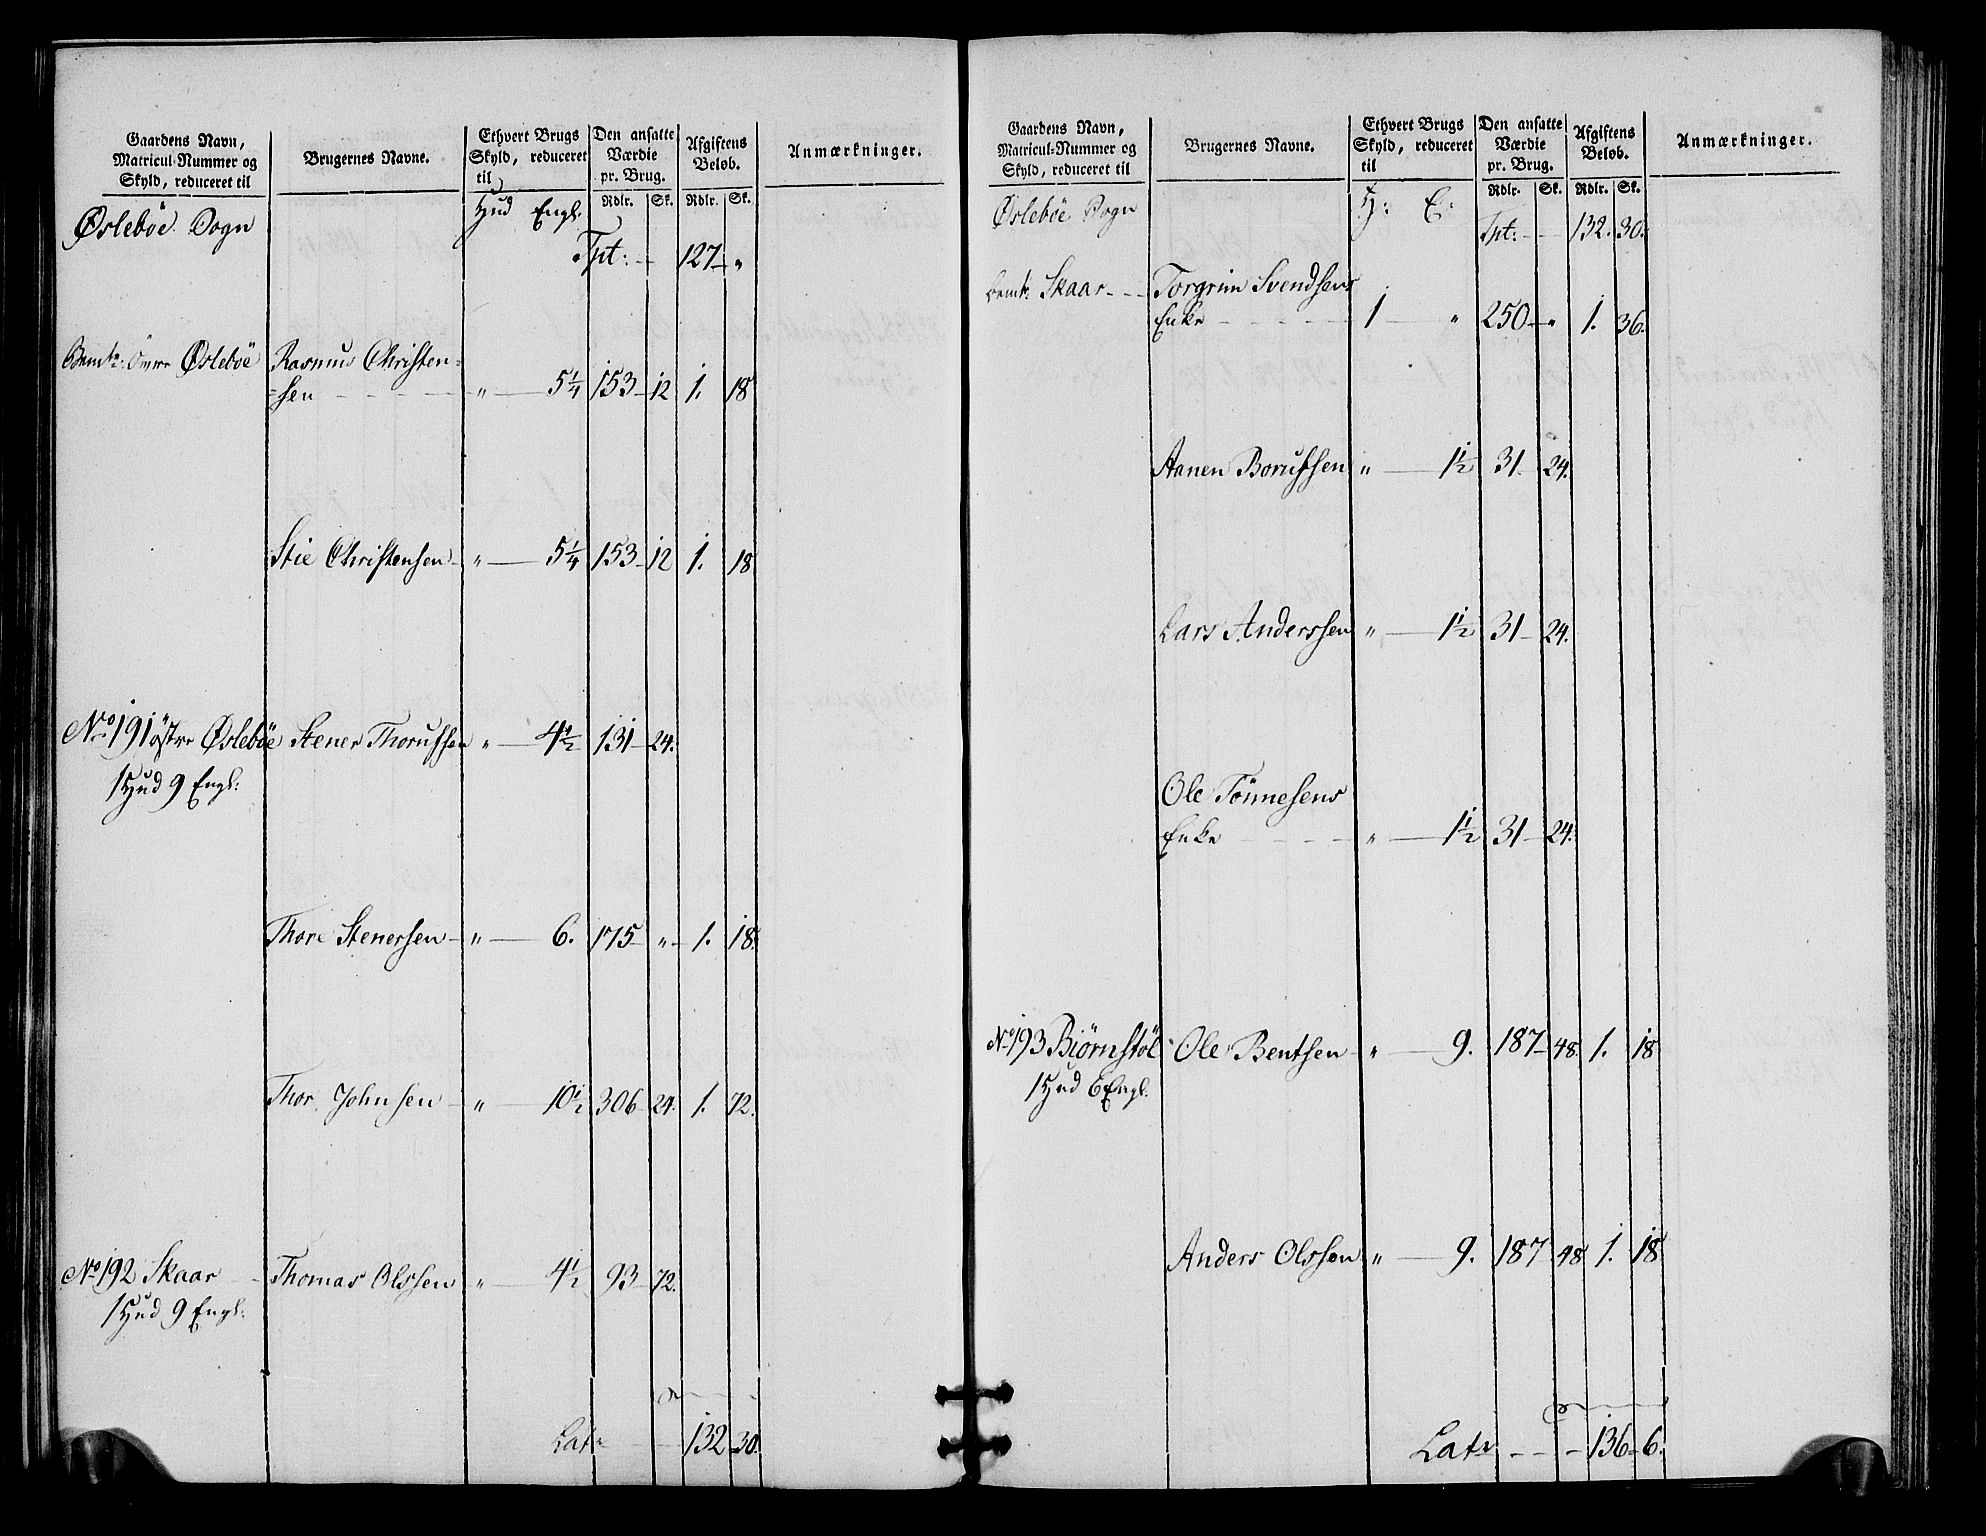 Gaardens Navn, Matricul-Nummer og Skyld, reduceret til
Brugernes Navne.
Ethvert Brugs Skyld, reduceret til
Den ansatte Værdie pr. Brug.
Afgiftens Beløb.
Anmærkninger.
Rdlr. Sk. Rdlr. Sk.
Øsleböe Sogn Hud Engl.
Tpt: - - 127 - "
Øsleböe Rasmus Christen=
=sen - - - - " - 5¼ 153 - 12 1. 18
Stie Christensen - " - 5¼ 153 - 12 1. 18
No 191 östre Øsleböe Stener Thorussen " - 4½ 131 - 24.
1 Hud 9 Engl:
Thore Stenersen - " - 6. 175 - " - 1. 18.
Thor Johnsen - " - 10½ 306 - 24. 1. 72.
No 192 Skaar - Thomas Olssen " - 4½ 93 - 72.
1 Hud 9 Engl:
Latr - - 132 - 30.
Gaardens Navn, Matricul-Nummer og Skyld, reduceret til
Brugernes Navne.
Ethvert Brugs Skyld, reduceret til
Den ansatte Værdie pr. Brug.
Afgiftens Beløb.
Anmærkninger.
Rdlr. Sk. Rdlr. Sk.
Øsleböe Sogn H: E:
Tpt: - - 132. 30.
Skaar - - - Torgrim Svendsens
Enke - - - - 1 - " 250 - " 1. 36.
Aanen Borussen " - 1½ 31 - 24.
Lars Anderssen " - 1½ 31 - 24.
Ole Tönnesens
Enke - - - - " - 1½ 31 - 24.
No 193 Biörnstöl Ole Bentsen - " - 9. 187 - 48 1. 18
1 Hud 6 Engl.
Anders Olssen " - 9. 187 48 1. 18
Latr - - - 136 - 6.